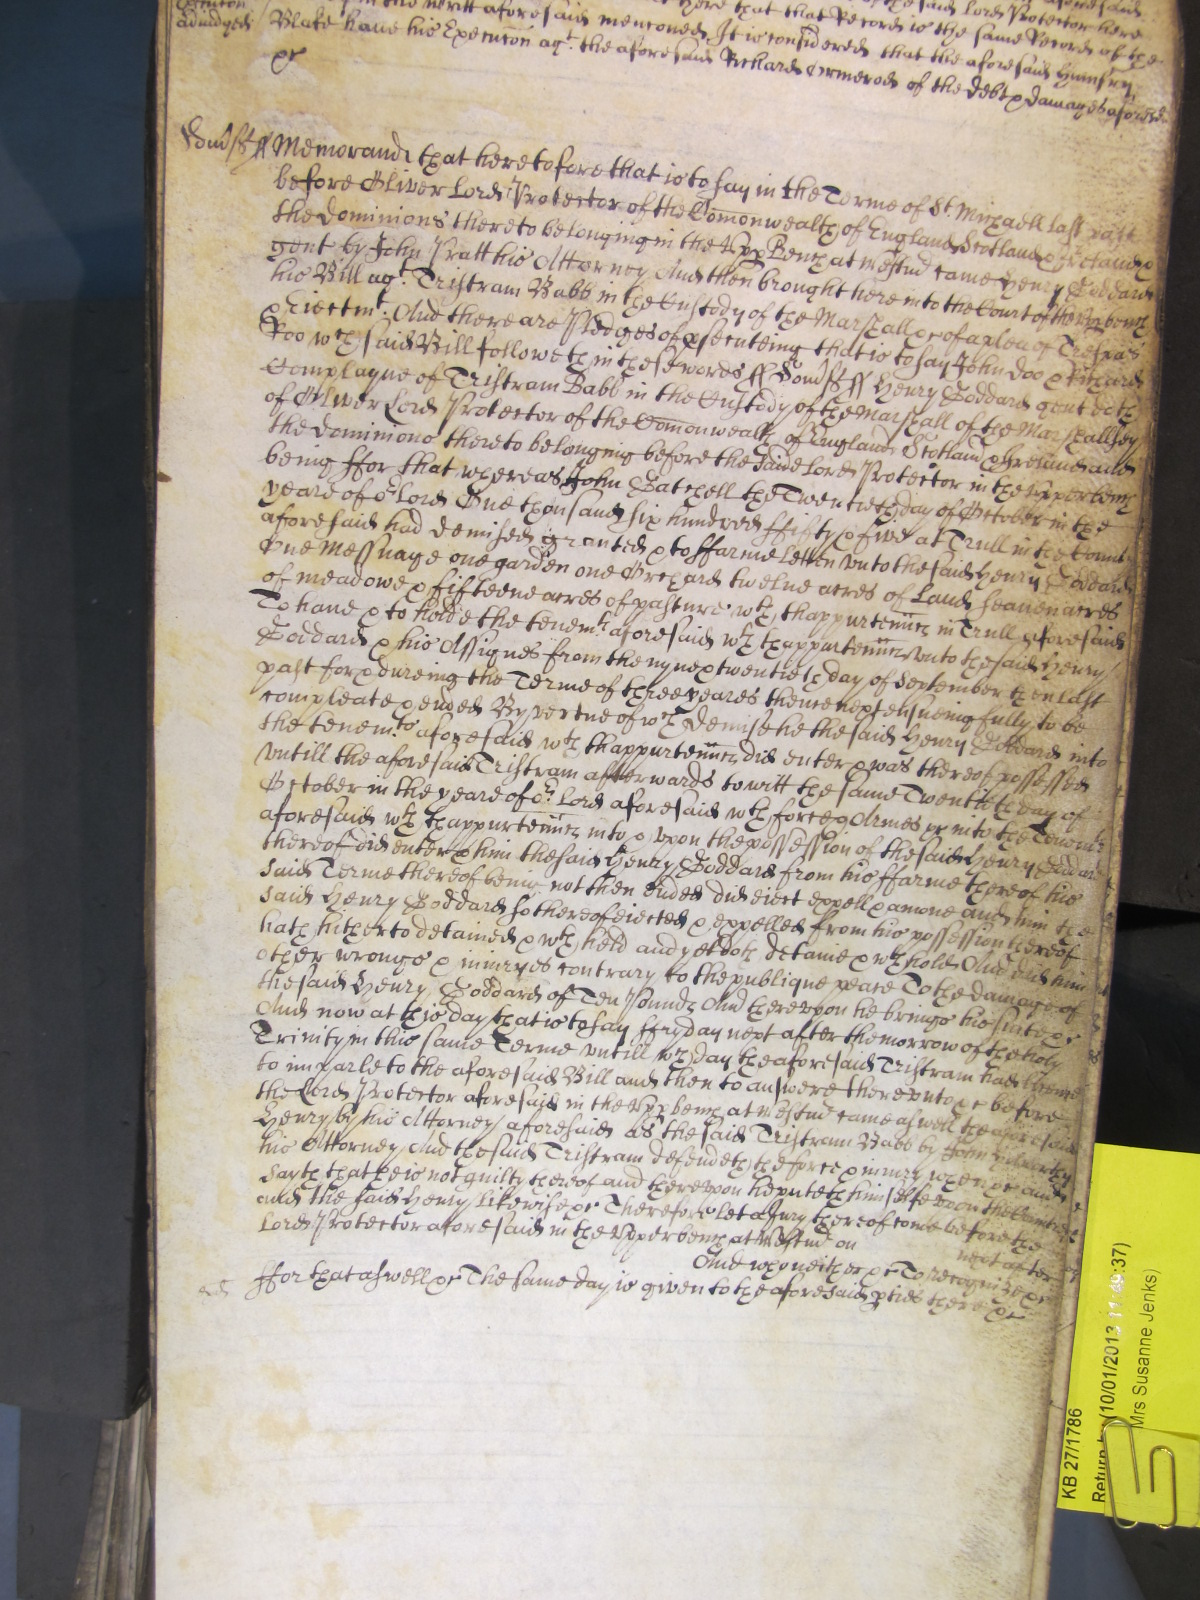 in the Writt aforesaid menconed It is considered that the aforesaid Humfry
Execucon
adiudged
Blake haue his Execucon agt. the aforesaid Richard Ormerod of the debt & damages aforesd.
&c
Somst ss Memorand that heretofore that is to say in the Terme of St. Michaell last past
before Oliver Lord Protector of the Comonwealth of England Scotland & Ireland &
the dominions thereto belonging in the Vpp Bench at Westmr came Henry Goddard
gent by John Pratt his Attorney And then brought here into the Court of the vp bench
his Bill agt. Tristram Babb in the Custody of the Marshall &c of a plea of Trespas
& Eiectmt. And there are Pledges of psecuteing that is to say John Doo & Richard
Roo wch said Bill followeth in these words ss Somst ss Henry Goddard gent doth
Complayne of Tristram Babb in the Custody of the Marshall of the Marshallsey
of Oliver Lord Protector of the Comonwealth of England Scotland & Ireland and
the dominions thereto belonging before the said Lord Protector in the vpper bench
being ffor that whereas John Satchell the Twentieth day of October in the
yeare of or Lord One thousand six hundred ffifty & five at Trull in the County
aforesaid had demised granted & to ffarme letten vnto the said Henry Goddard
One Messuage one garden one Orchard twelue acres of Land seauen acres
of meadowe & fifteene acres of pasture wth thappurtennces in Trull aforesaid
To haue & to holde the tenemts aforesaid wth thappurtennces vnto the said Henry
Goddard & his Assignes from the nyne & twentieth day of September then last
past for & dureing the Terme of three yeares thence next ensueing fully to be
compleate & ended By vertue of wch demise he the said Henry Goddard into
the tenemts aforesaid wth thappurtennces did enter & was thereof possessed
vntill the aforesaid Tristram afterwards to witt the same Twentieth day of
October in the yeare of or Lord aforesaid wth force & Armes &c into the Tenemts
aforesaid wth thappurtennces into & vpon the possession of the said Henry Goddard
thereof did enter & him the said Henry Goddard from his ffarme thereof his
said Terme thereof being not then ended did eiect expell & amoue and him the
said Henry Goddard so thereof eiected & expelled from his possession thereof
hath hitherto detained & wth held and yet doth detaine & wth hold And did him
other wrongs & iniuryes contrary to the publique peace To the damage of
the said Henry Goddard of Ten Pounds And therevpon he brings his suite &c
And now at this day that is to say ffryday next after the morrow of the holy
Trinity in this same Terme vntill wch day the aforesaid Tristram had licence
to imparle to the aforesaid Bill and then to answere therevnto &c before
the Lord Protector aforesaid in the Vpp bench at Westmr came aswell the aforesaid
Henry by his Attorney aforesaid as the said Tristram Babb by John
his Attorney And the said Tristram defendeth the force & iniury when &c and
sayth that he is not guilty thereof and therevpon he putteth himselfe vpon the Countrie
and the said Henry likewise &c Therefore let a Jury thereof come before the
Lord Protector aforesaid in the Vpper bench at Westmr on next after
And who neither &c To recognize &c
ffor that aswell &c The same day is given to the aforesaid pties there &c
KB 27/1786
Return (10/01/2013 11:49:37)
Mrs Susanne Jenks)